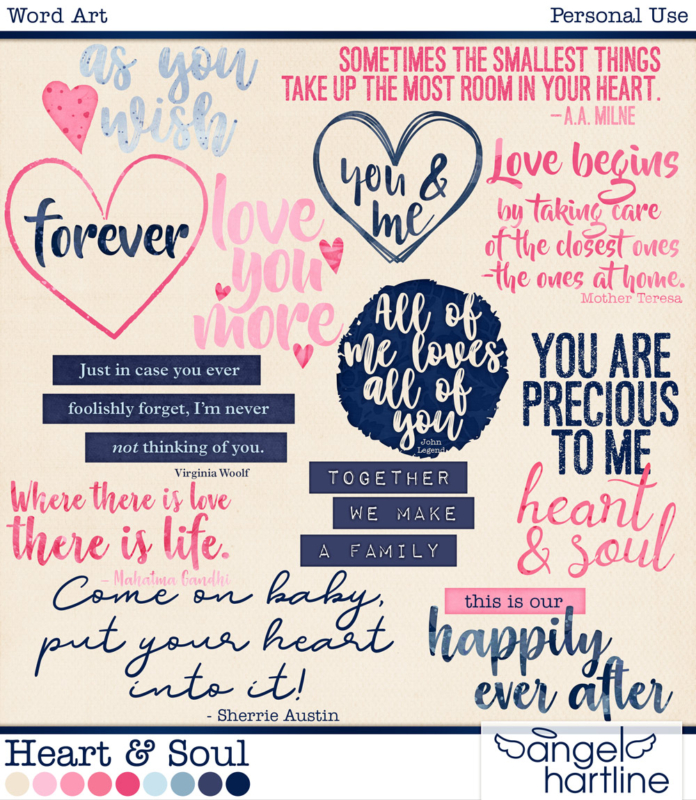 Word Art
Personal Use
as you
wish
SOMETIMES THE SMALLEST THINGS
TAKE UP THE MOST ROOM IN YOUR HEART.
—A.A. MILNE
you &
me
Love begins
by taking care
of the closest ones
-the ones at home.
Mother Teresa
forever
love
you
more
All of
me loves
all of
you
John
Legend
YOU ARE
PRECIOUS
TO ME
Just in case you ever
foolishly forget, I'm never
not thinking of you.
Virginia Woolf
TOGETHER
WE MAKE
A FAMILY
heart
& soul
Where there is love
there is life.
- Mahatma Gandhi
Come on baby,
put your heart
into it!
- Sherrie Austin
this is our
happily
ever after
Heart & Soul
angel
hartline